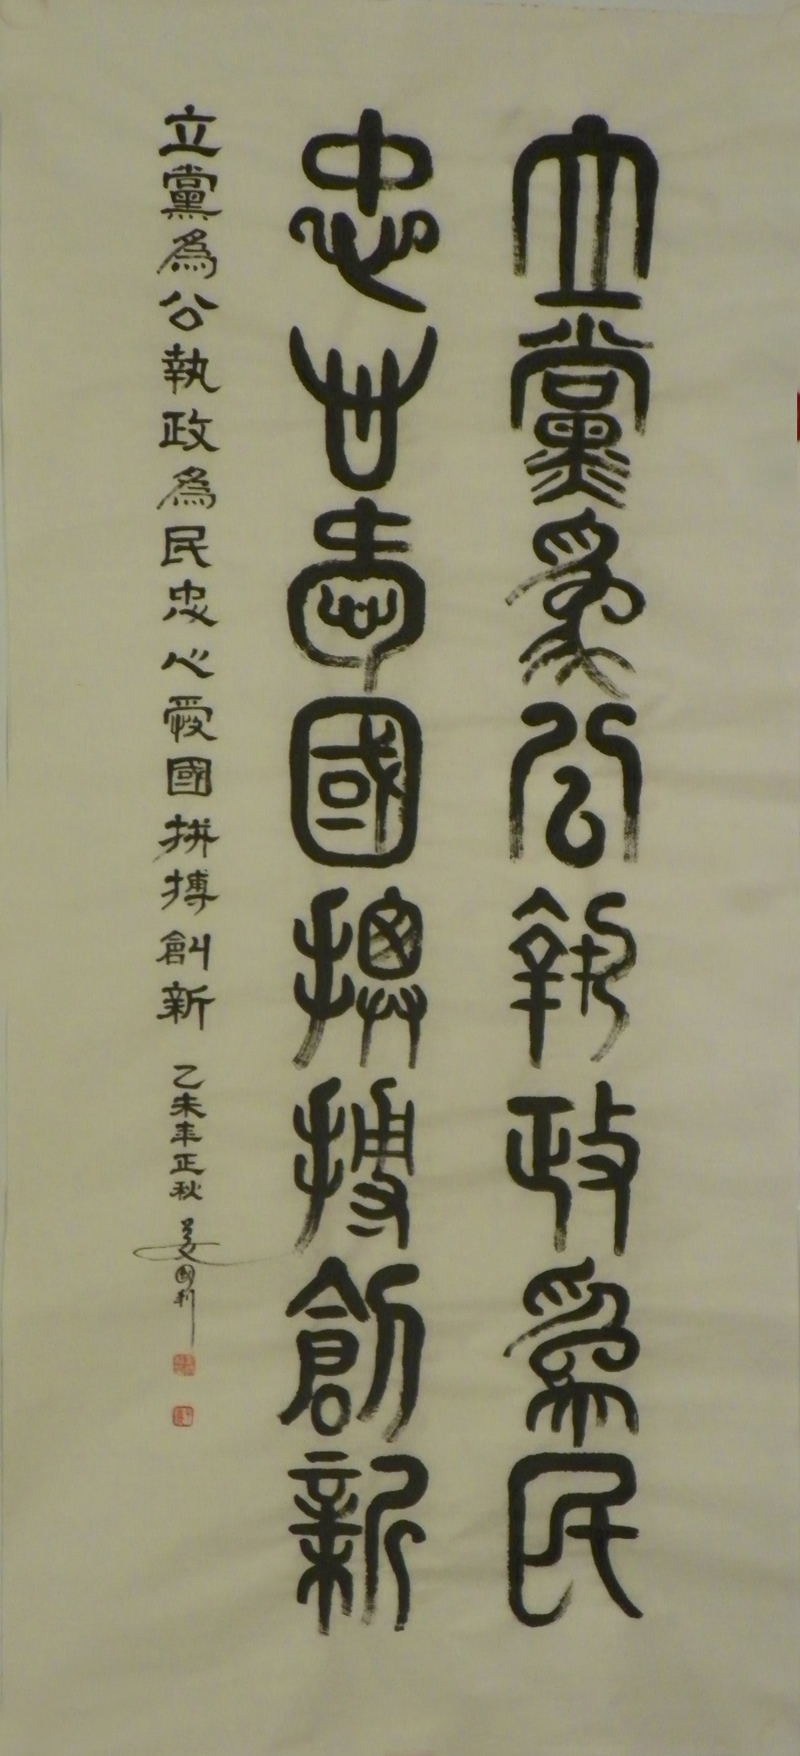 立黨為公執政為民
忠心愛國拼搏創新
立黨為公執政為民忠心愛國拼搏創新 乙未年正秋 姜國利